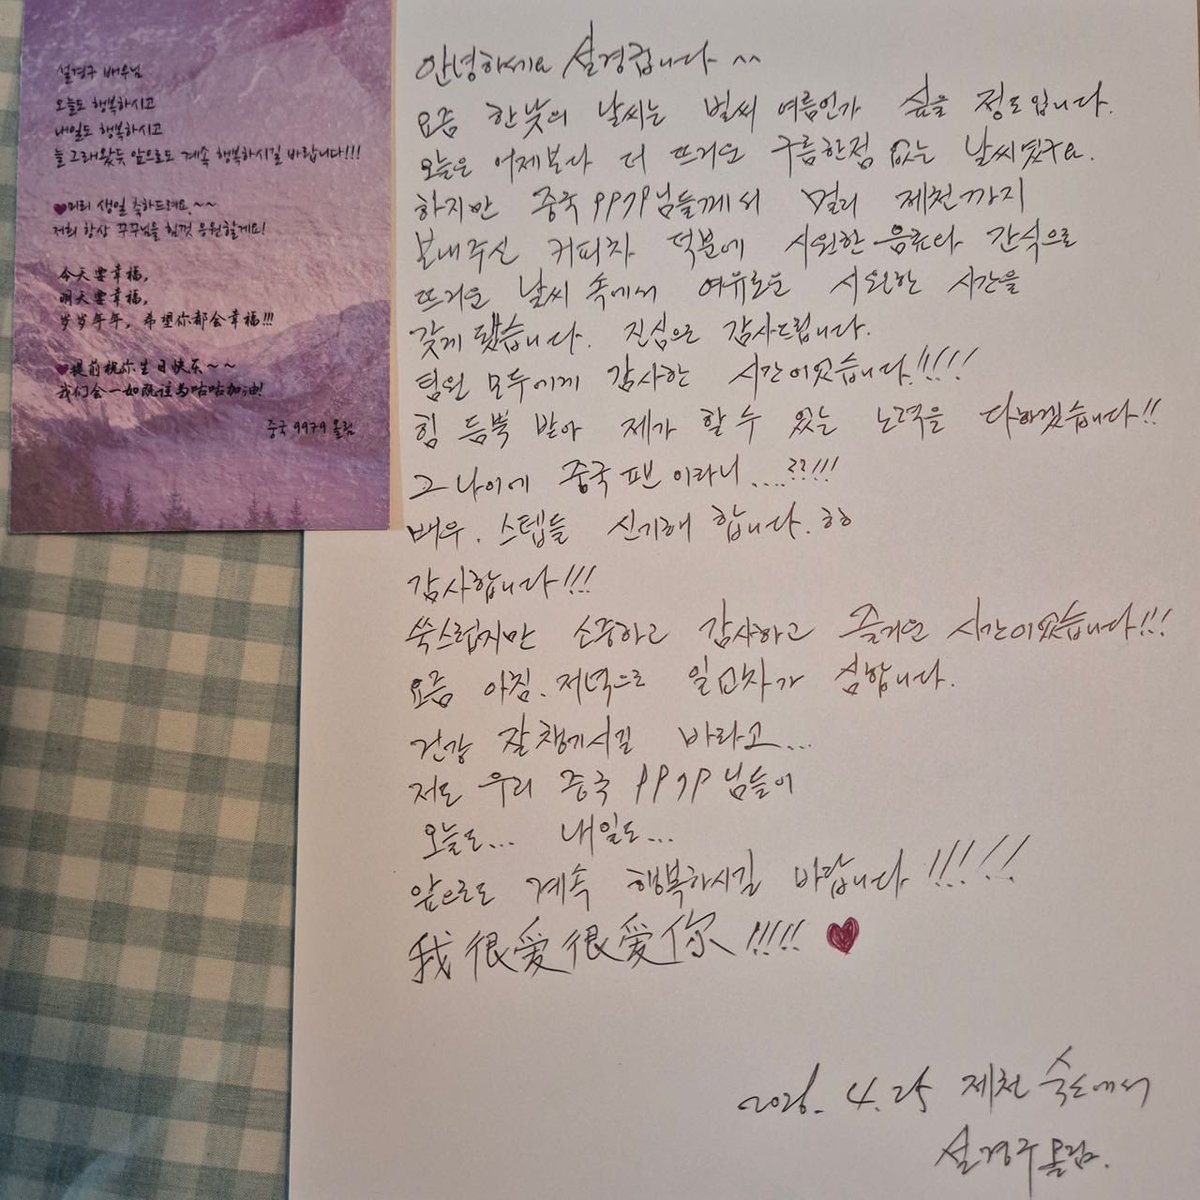 설경구 배우님
오늘도 행복하시고
내일도 행복하시고
늘 그래왔듯 앞으로도 계속 행복하시길 바랍니다!!!
♥미리 생일 축하드려요.~~
저희 항상 꾸꾸님을 힘껏 응원할게요!
今天要幸福,
明天要幸福,
岁岁年年, 希望你都会幸福!!!
♥提前祝你生日快乐~~
我们会一如既往为咕咕加油!
중국 9979 올림
안녕하세요 설경굽니다 ^^
요즘 한낮의 날씨는 벌써 여름인가 싶을 정도입니다.
오늘은 어제보다 더 뜨거운 구름한점 없는 날씨였구요.
하지만 중국 9979님들께서 멀리 제천까지
보내주신 커피차 덕분에 시원한 음료와 간식으로
뜨거운 날씨 속에서 여유로운 시원한 시간을
갖게 됐습니다. 진심으로 감사드립니다.
팀원 모두에게 감사한 시간이었습니다.!!!!
힘 듬뿍 받아 제가 할 수 있는 노력을 다하겠습니다!!
그 나이에 중국 팬이라니....??!!!
배우. 스텝들 신기해 합니다.ㅎㅎ
감사합니다!!!
쑥스럽지만 소중하고 감사하고 즐거운 시간이었습니다!!!
요즘 아침.저녁으로 일교차가 심합니다.
건강 잘 챙기시길 바라고...
저도 우리 중국 9979님들이
오늘도... 내일도...
앞으로도 계속 행복하시길 바랍니다!!!!!
我很爱很爱你!!!!! ♥
2026. 4. 25 제천 숙소에서
설경구 올림.